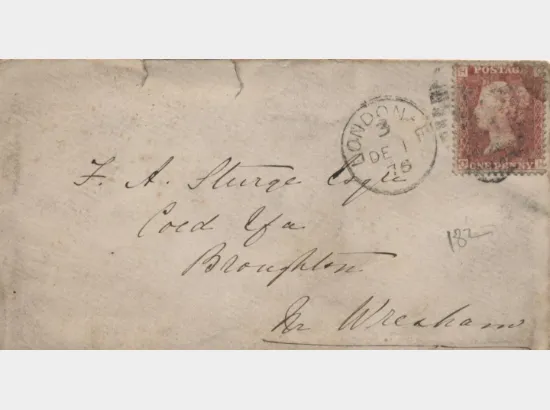 POSTAGE
LONDON E
3
DE 1
76
ONE PENNY
F. A. Sturge Esqre
Coed Yfa
Broughton
Nr Wrexham
182